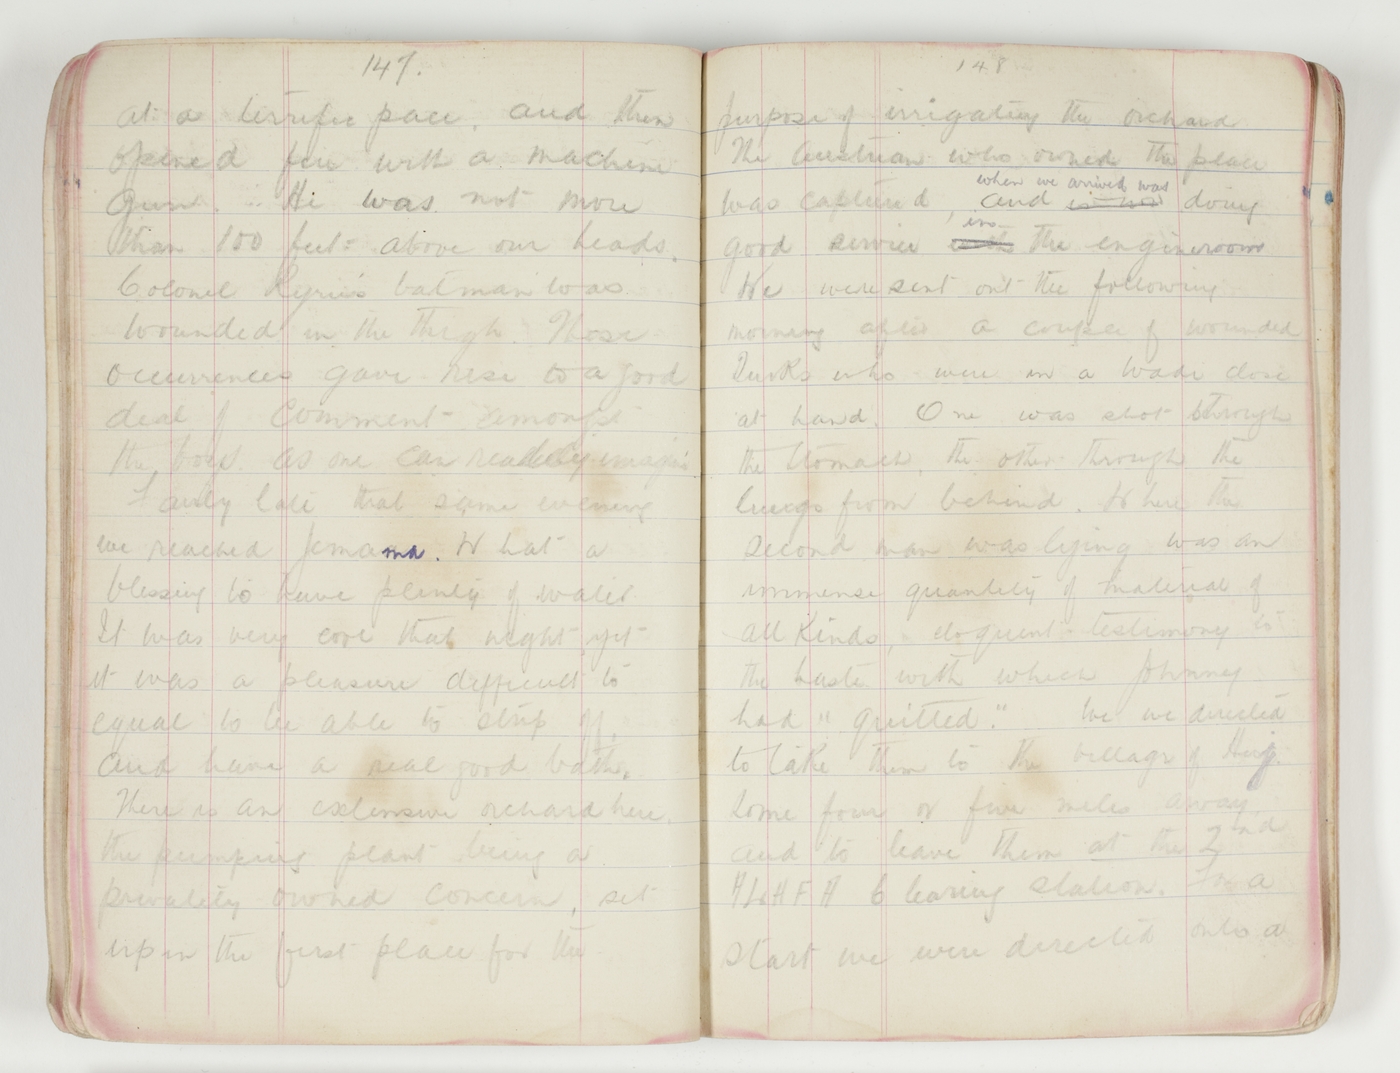 147.
at a terrific pace, and then
opened fire with a machine
Gun. He was not more
than 100 feet above our heads.
Colonel Ryrie's batman was
wounded in the thigh. Those
occurrences gave rise to a good
deal of comment amongst
the boys. as one can readily imagine
Fairly late that same evening
we reached Jemama. What a
blessing to have plenty of water
It was very cool that night yet
it was a pleasure difficult to
equal to be able to strip off,
and have a real good bath.
There is an extensive orchard here.
the pumping plant being a
privately owned concern, set
up in the first place for the
148
purpose of irrigating the orchard
The Austrian who owned the place
was captured, and when we arrived was doing
good service in the engineroom
We were sent out the following
morning after a couple of wounded
Turks who were in a wadi close
at hand. One was shot through
the stomach, the other through the
lungs from behind. Where the
second man was lying was an
immense quantity of material of
all kinds, eloquent testimony to
the haste with which Johnny
had "quitted." We we directed
to take them to the village of Huj
some four or five miles away
and to leave them at the 2nd
ALHFA Clearing station. For a
start we were directed onto a